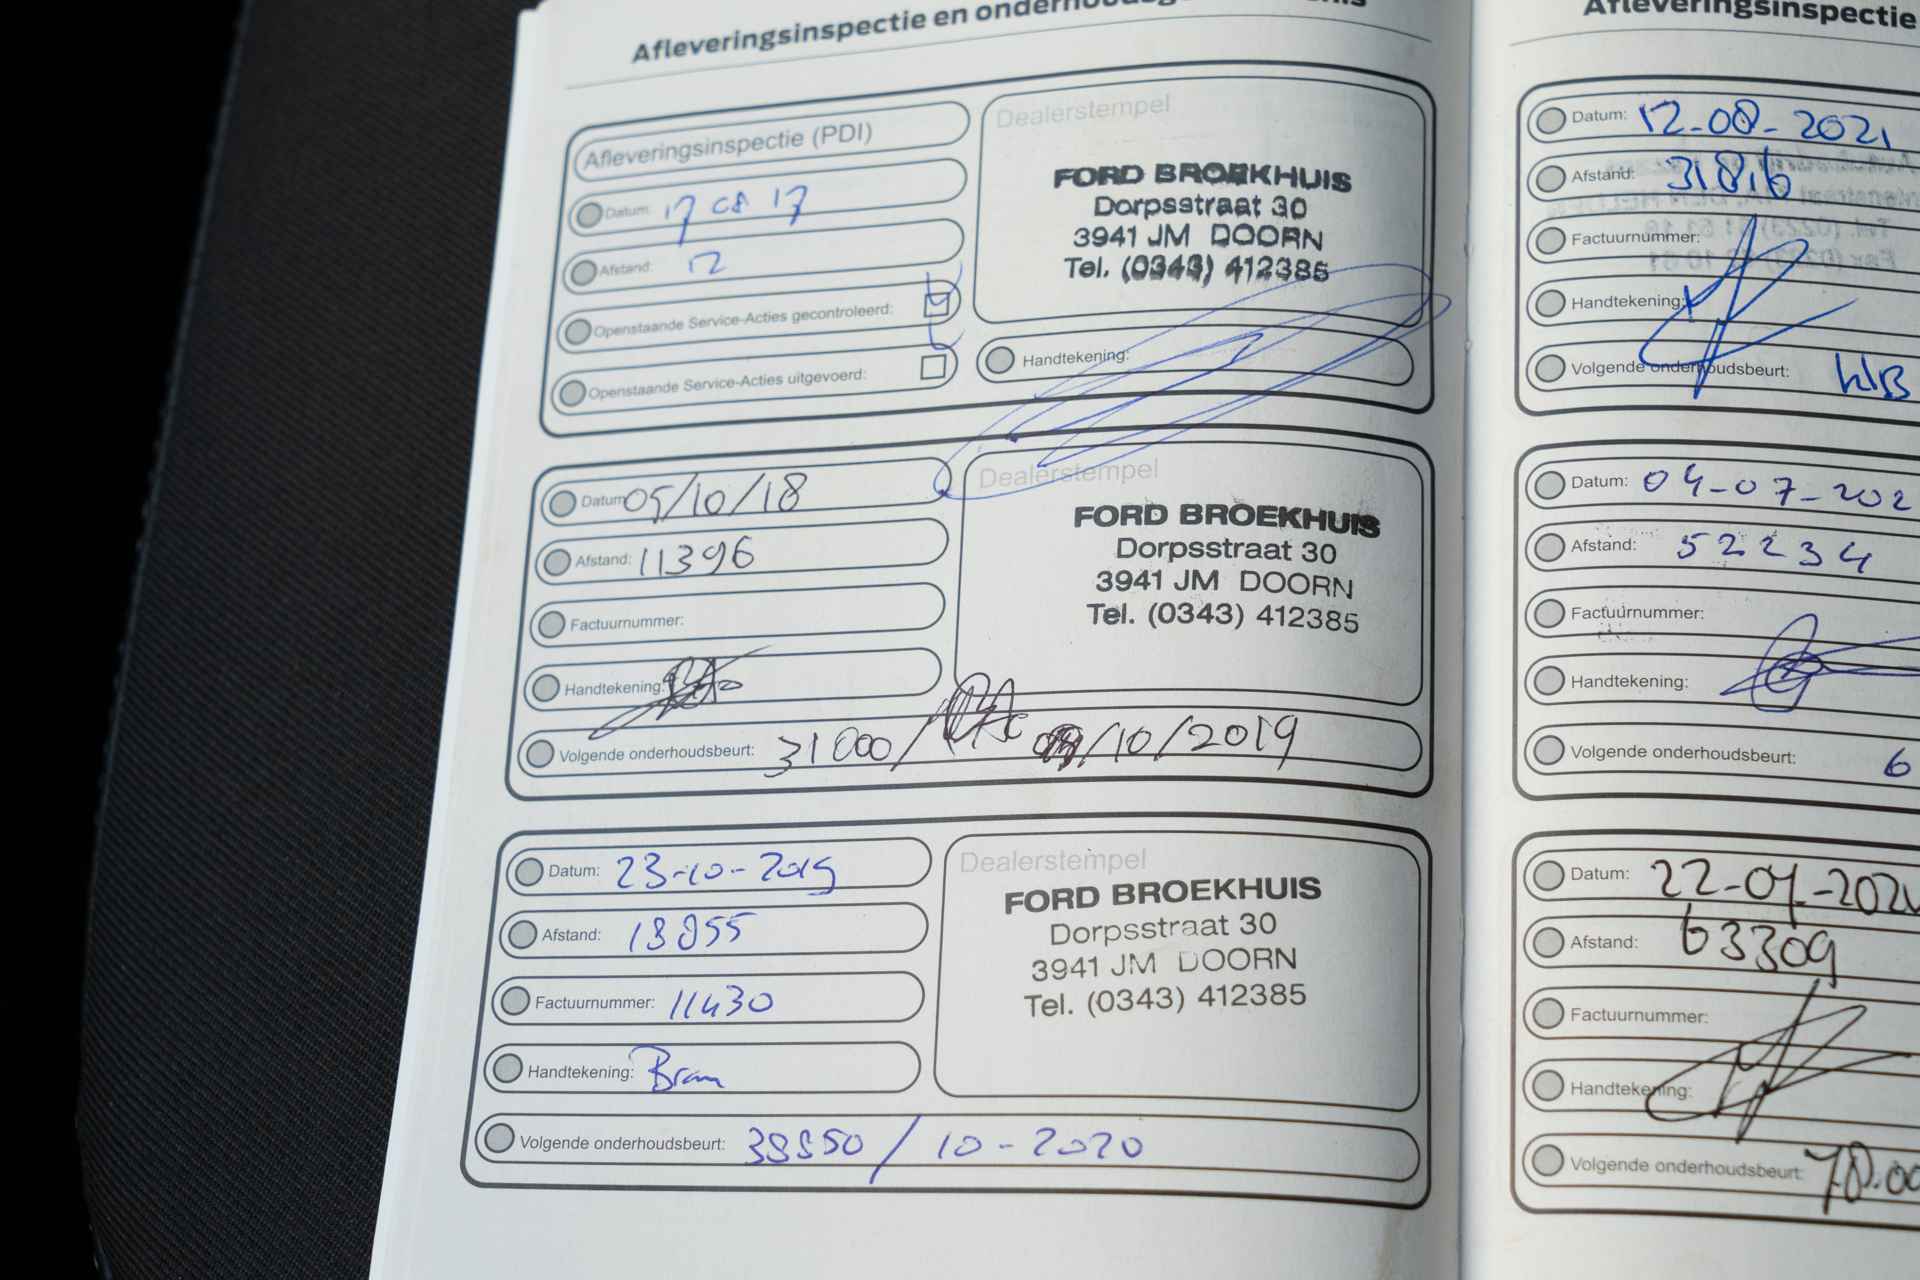 Afleveringsinspectie en
Afleveringsinspectie (PDI)
Datum: 17 08 17
Afstand: 12
Openstaande Service-Acties gecontroleerd:
Openstaande Service-Acties uitgevoerd:
Dealerstempel
FORD BROEKHUIS
Dorpsstraat 30
3941 JM DOORN
Tel. (0343) 412385
Handtekening:
Datum: 05/10/18
Afstand: 11396
Factuurnummer:
Handtekening:
Volgende onderhoudsbeurt: 31000/ /10/2019
Dealerstempel
FORD BROEKHUIS
Dorpsstraat 30
3941 JM DOORN
Tel. (0343) 412385
Datum: 23-10-2019
Afstand: 18855
Factuurnummer: 11430
Handtekening: Bram
Volgende onderhoudsbeurt: 38850 / 10-2020
Dealerstempel
FORD BROEKHUIS
Dorpsstraat 30
3941 JM DOORN
Tel. (0343) 412385
Afleveringsinspectie
Datum: 12-08-2021
Afstand: 31816
Factuurnummer:
Handtekening:
Volgende onderhoudsbeurt:
Datum: 04-07-202
Afstand: 52234
Factuurnummer:
Handtekening:
Volgende onderhoudsbeurt: 6
Datum: 22-04-202
Afstand: 63309
Factuurnummer:
Handtekening:
Volgende onderhoudsbeurt: 78.00